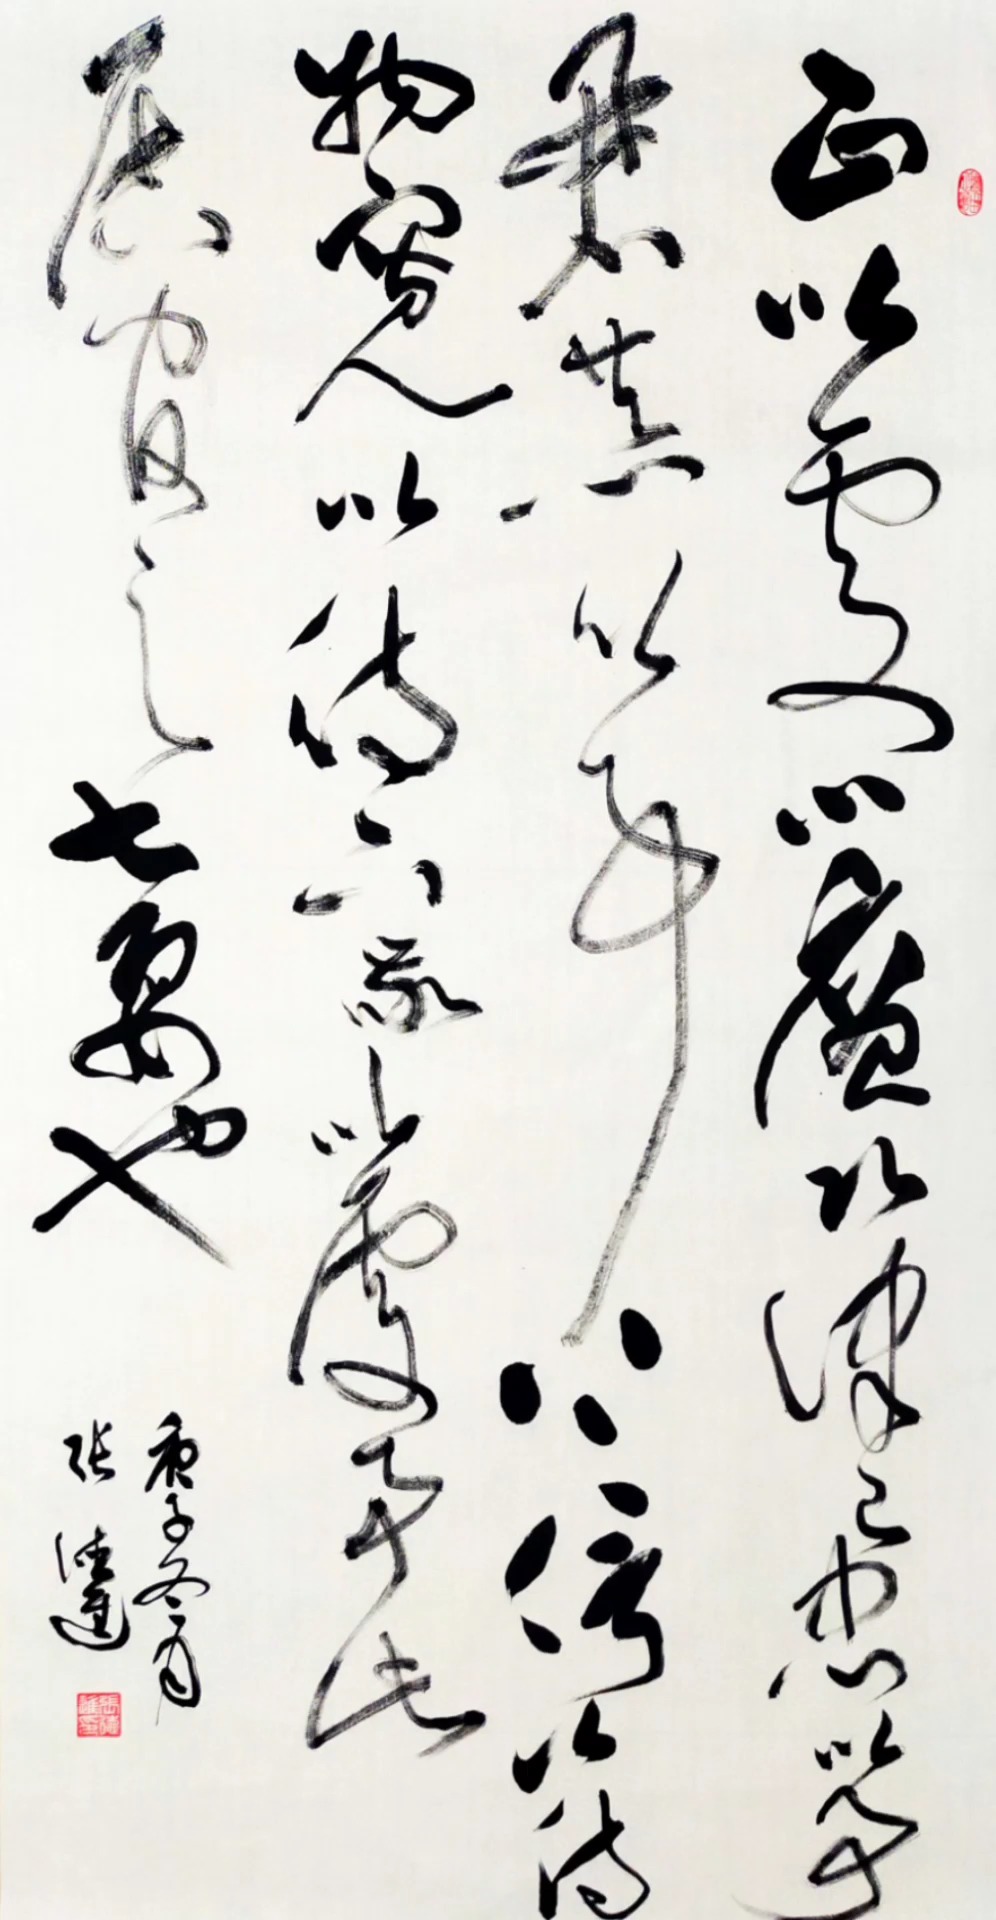 正以處心廉以律己忠以事
君恭以事長信以待
物寬以待下敬以處事此
居官之七要也
庚子冬月
张